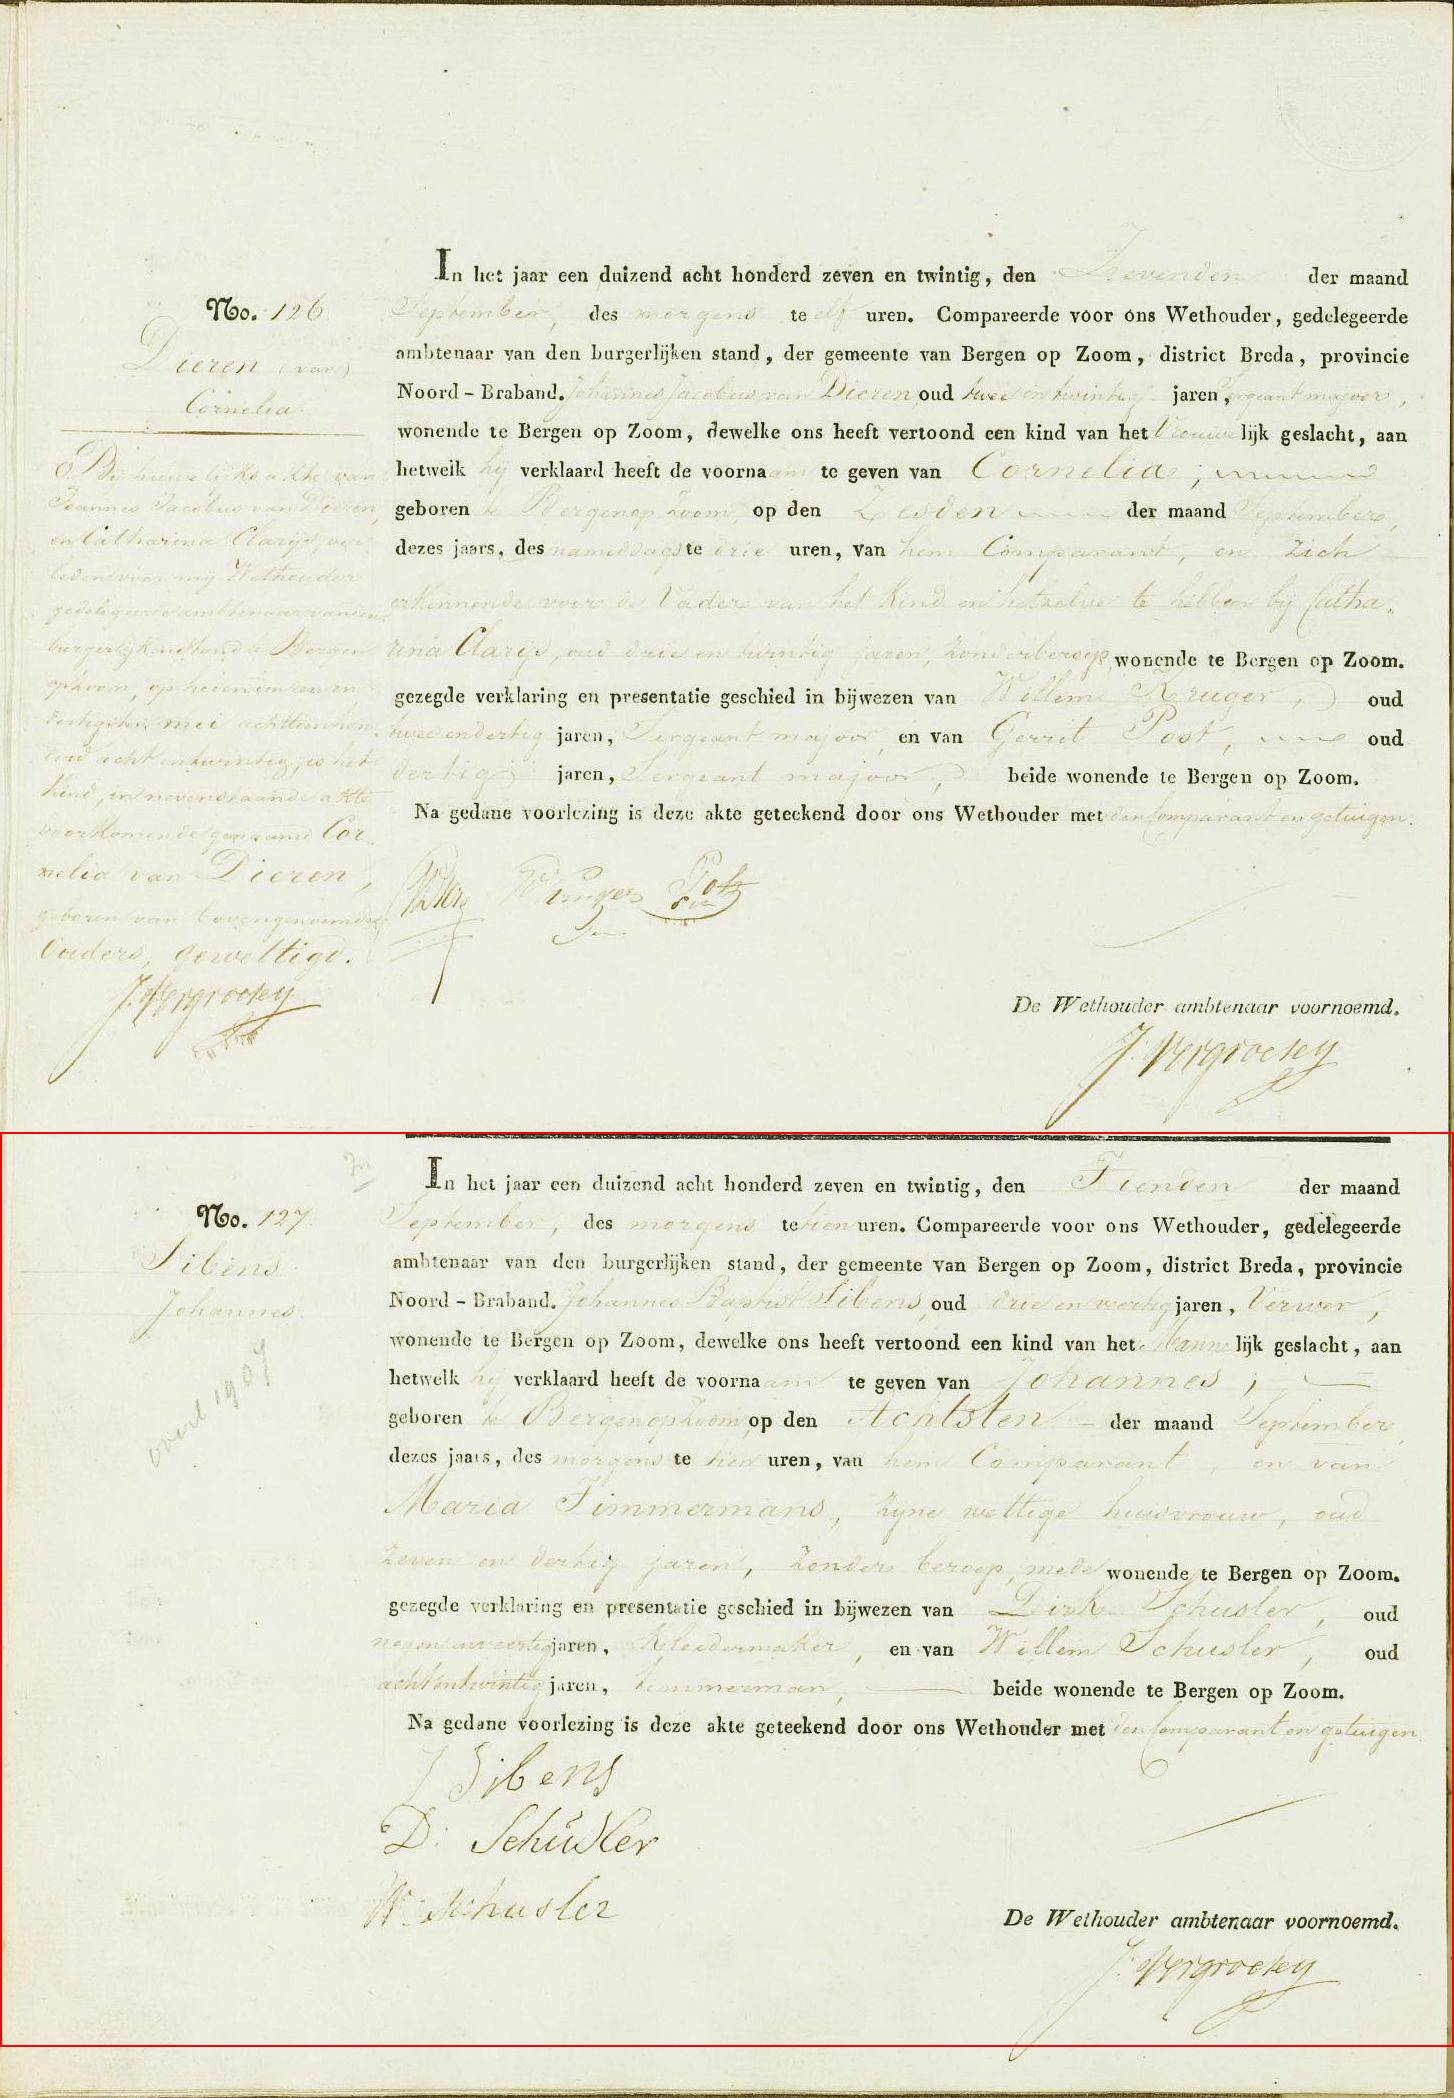 No. 126
Dieren (van)
Cornelia.
Bij huwelijks akte van
Joannes Jacobus van Dieren
en Catharina Clarijs, ver
leden voor mij Wethouder
gedelegeerde ambtenaar van den
burgerlijken stand te Bergen
op Zoom, op heden den een en
dertigsten mei achttien hon
derd acht en twintig, is het
kind, in nevenstaande akte
voorkomende genaamd Cor
nelia van Dieren,
geboren van bovengenoemde
Ouders, gewettigd.
J. Vergroesen
In het jaar een duizend acht honderd zeven en twintig, den Zevenden der maand
September, des morgens te elf uren. Compareerde voor ons Wethouder, gedelegeerde
ambtenaar van den burgerlijken stand, der gemeente van Bergen op Zoom, district Breda, provincie
Noord-Braband. Johannes Jacobus van Dieren, oud twee en twintig jaren, Sergeant majoor,
wonende te Bergen op Zoom, dewelke ons heeft vertoond een kind van het Vrouwelijk geslacht, aan
hetwelk hij verklaard heeft de voornaam te geven van Cornelia;
geboren te Bergen op Zoom, op den Zesden der maand September,
dezes jaars, des namiddags te drie uren, van hem Comparant, en zich
erkennende voor de Vader van het Kind en hetzelve te hebben bij Catha,
rina Clarijs, oud drie en twintig jaren, zonder beroep, wonende te Bergen op Zoom.
gezegde verklaring en presentatie geschied in bijwezen van Willem Kruger, oud
twee en dertig jaren, Sergeant majoor, en van Gerrit Post, oud
dertig jaren, Sergeant majoor, beide wonende te Bergen op Zoom.
Na gedane voorlezing is deze akte geteekend door ons Wethouder met den Comparant en getuigen.
Kruger Post
De Wethouder ambtenaar voornoemd.
J. Vergroesen
No. 127.
Sibens
Johannes
overl 1907
In het jaar een duizend acht honderd zeven en twintig, den Tienden der maand
September, des morgens te tien uren. Compareerde voor ons Wethouder, gedelegeerde
ambtenaar van den burgerlijken stand, der gemeente van Bergen op Zoom, district Breda, provincie
Noord-Braband. Johannes Baptist Sibens, oud drie en veertig jaren, Verwer,
wonende te Bergen op Zoom, dewelke ons heeft vertoond een kind van het Mannelijk geslacht, aan
hetwelk hij verklaard heeft de voornaam te geven van Johannes;
geboren te Bergen op Zoom, op den Achtsten der maand September,
dezes jaars, des morgens te tien uren, van hem Comparant, en van
Maria Timmermans, zijne wettige huisvrouw, oud
zeven en dertig jaren, zonder beroep, mede wonende te Bergen op Zoom.
gezegde verklaring en presentatie geschied in bijwezen van Dirk Schusler, oud
negen en veertig jaren, Kleedermaker, en van Willem Schusler, oud
acht en twintig jaren, timmerman, beide wonende te Bergen op Zoom.
Na gedane voorlezing is deze akte geteekend door ons Wethouder met den Comparant en getuigen
J Sibens
D: Schusler
W: Schusler
De Wethouder ambtenaar voornoemd.
J. Vergroesen